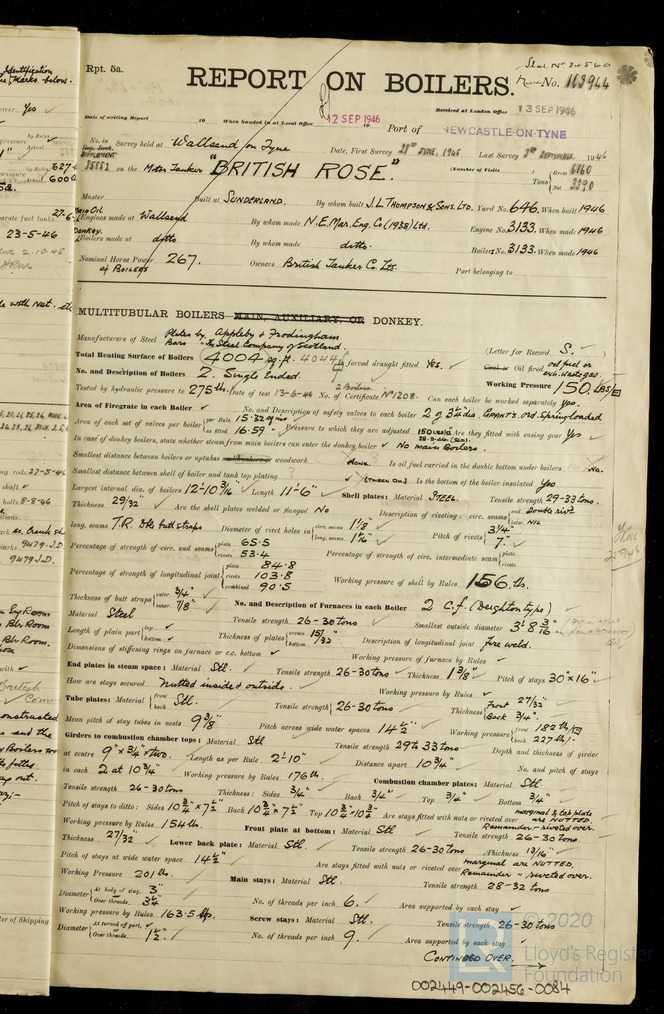 Rpt. 5a.
REPORT ON BOILERS.
No. 103944
Date of writing Report 19 When handed in at Local Office 12 SEP 1946 19 Port of NEWCASTLE-ON-TYNE
Received at London Office 13 SEP 1946
No. in Survey held at Wallsend on Tyne Date, First Survey JUNE, 1945 Last Survey SEPTEMBER 1946
on the Motor Tanker "BRITISH ROSE." (Number of Visits ) Tons Gross Net 3390
Master Built at SUNDERLAND. By whom built J.L THOMPSON & SONS. LTD. Yard No. 646. When built 1946
Main Oil Engines made at Wallsend By whom made N.E. Mar. Eng. Co (1938) Ltd. Engine No. 3133. When made 1946
Donkey. Boilers made at ditto By whom made ditto. Boiler No. 3133. When made 1946
Nominal Horse Power of BOILERS 267. Owners British Tanker Co. Ltd. Port belonging to
MULTITUBULAR BOILERS MAIN, AUXILIARY, OR DONKEY.
Manufacturers of Steel Plates by Appleby & Frodingham
Bars " The Steel Company of Scotland. (Letter for Record S. )
Total Heating Surface of Boilers 4004 sq. ft. 4044 forced draught fitted Yes. Coal or Oil fired oil fuel or exh. waste gas.
No. and Description of Boilers 2. Single Ended. Working Pressure 150. LBS/□"
Tested by hydraulic pressure to 275 lb. Date of test 13-6-46 No. of Certificate 2 Boilers. No 1208. Can each boiler be worked separately Yes.
Area of Firegrate in each Boiler ✓ No. and Description of safety valves to each boiler 2 @ 3½" dia. GRANT'S. ord. Spring loaded
Area of each set of valves per boiler per Rule 15.32 as fitted 16.59 Pressure to which they are adjusted 150 LBS/□" Are they fitted with easing gear Yes
In case of donkey boilers, state whether steam from main boilers can enter the donkey boiler ✓ No main Boilers.
Smallest distance between boilers or uptakes and bunkers or woodwork Is oil fuel carried in the double bottom under boilers No.
Smallest distance between shell of boiler and tank top plating ✓ Is the bottom of the boiler insulated Yes
Largest internal dia. of boilers 12'-10 3/16" Length 11'-6" Shell plates: Material STEEL. Tensile strength 29-33 tons.
Thickness 29/32" Are the shell plates welded or flanged No Description of riveting: circ. seams end Double rivt inter. NIL
long. seams T.R. Dble butt straps Diameter of rivet holes in circ. seams 1 1/8" long. seams Pitch of rivets 3 3/4" 7"
Percentage of strength of circ. end seams plate 65.5 rivets 53.4 Percentage of strength of circ. intermediate seam plate rivets
Percentage of strength of longitudinal joint plate 84.8 rivets 103.8 combined 90.5 Working pressure of shell by Rules 156 lb.
Thickness of butt straps outer 3/4" inner 7/8" No. and Description of Furnaces in each Boiler 2 C.f. (Deighton type)
Material Steel Tensile strength 26-30 tons Smallest outside diameter 3' 8 3/16"
Length of plain part top bottom Thickness of plates crown bottom 15/32" Description of longitudinal joint fire weld.
Dimensions of stiffening rings on furnace or c.c. bottom ✓ Working pressure of furnace by Rules
End plates in steam space: Material Stl. Tensile strength 26-30 tons Thickness 1 3/8" Pitch of stays 30" × 16"
How are stays secured Nutted inside & outside. Working pressure by Rules ✓
Tube plates: Material front back Stl. Tensile strength 26-30 tons Thickness Front 27/32" Back 3/4".
Mean pitch of stay tubes in nests 9 3/8" Pitch across wide water spaces 14 ½" Working pressure front 182 lb/□" back 227 lb/-
Girders to combustion chamber tops: Material Stl Tensile strength 29 to 33 tons Depth and thickness of girder
at centre 9" × 3/4" × two. Length as per Rule 2'-10" Distance apart 10 3/4" No. and pitch of stays
in each 2 at 10 3/4" Working pressure by Rules 176 lb. Combustion chamber plates: Material Stl.
Tensile strength 26-30 tons Thickness: Sides 3/4" Back 3/4" Top 3/4" Bottom 3/4"
Pitch of stays to ditto: Sides 10 3/4" × 7½" Back 10 3/4" × 7½" Top 10 3/4" × 10 3/4" Are stays fitted with nuts or riveted over marginal & top plate are NUTTED. Remainder - riveted over.
Working pressure by Rules 154 lb. Front plate at bottom: Material Stl Tensile strength 26-30 tons.
Thickness 27/32" Lower back plate: Material Stl. Tensile strength 26-30 tons Thickness 13/16"
Pitch of stays at wide water space 14½" Are stays fitted with nuts or riveted over marginal are NUTTED. Remainder " riveted over.
Working Pressure 201 lb. Main stays: Material Stl. Tensile strength 28-32 tons
Diameter At body of stay, 3" Over threads. 3¼" No. of threads per inch 6. Area supported by each stay ✓
Working pressure by Rules 163.5 lb. Screw stays: Material Stl. Tensile strength 26-30 tons
Diameter At turned off part, Over threads. 1½". No. of threads per inch 9. Area supported by each stay ✓
CONTINUED OVER. →
© 2020
LR
Lloyd's Register
Foundation
002449-002456-0084